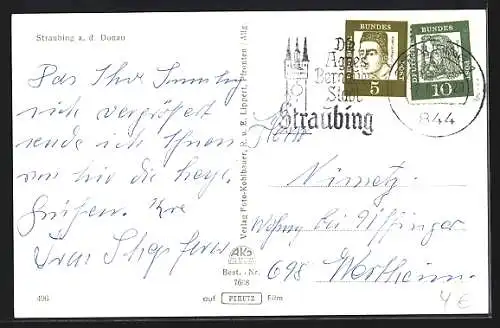 Straubing a. d. Donau
Das Ihr
sich vergrößert
sende ich Ihnen
von hier die
Grüßen. Ihre
Frau
496
Verlag Foto-Kohlbauer, R. u. E. Lippert, Pfronten / Allg
AKO
Best.-Nr.
7608
auf PERUTZ Film
Die
Agnes
Bernauer
Stadt
Straubing
DEUTSCHE BUNDESPOST
5
DEUTSCHE BUNDESPOST
10
844
Herrn
Nimetz
Wohng bei Öffinger
698 Wertheim
4 €